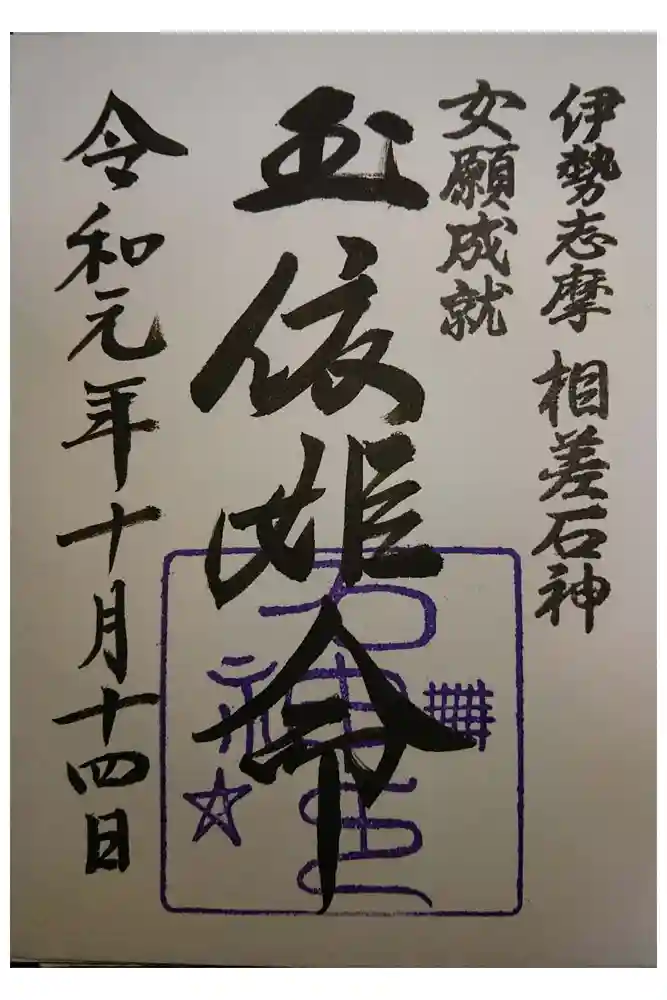 伊勢志摩 相差石神
女願成就
玉依姫命
令和元年十月十四日
石神